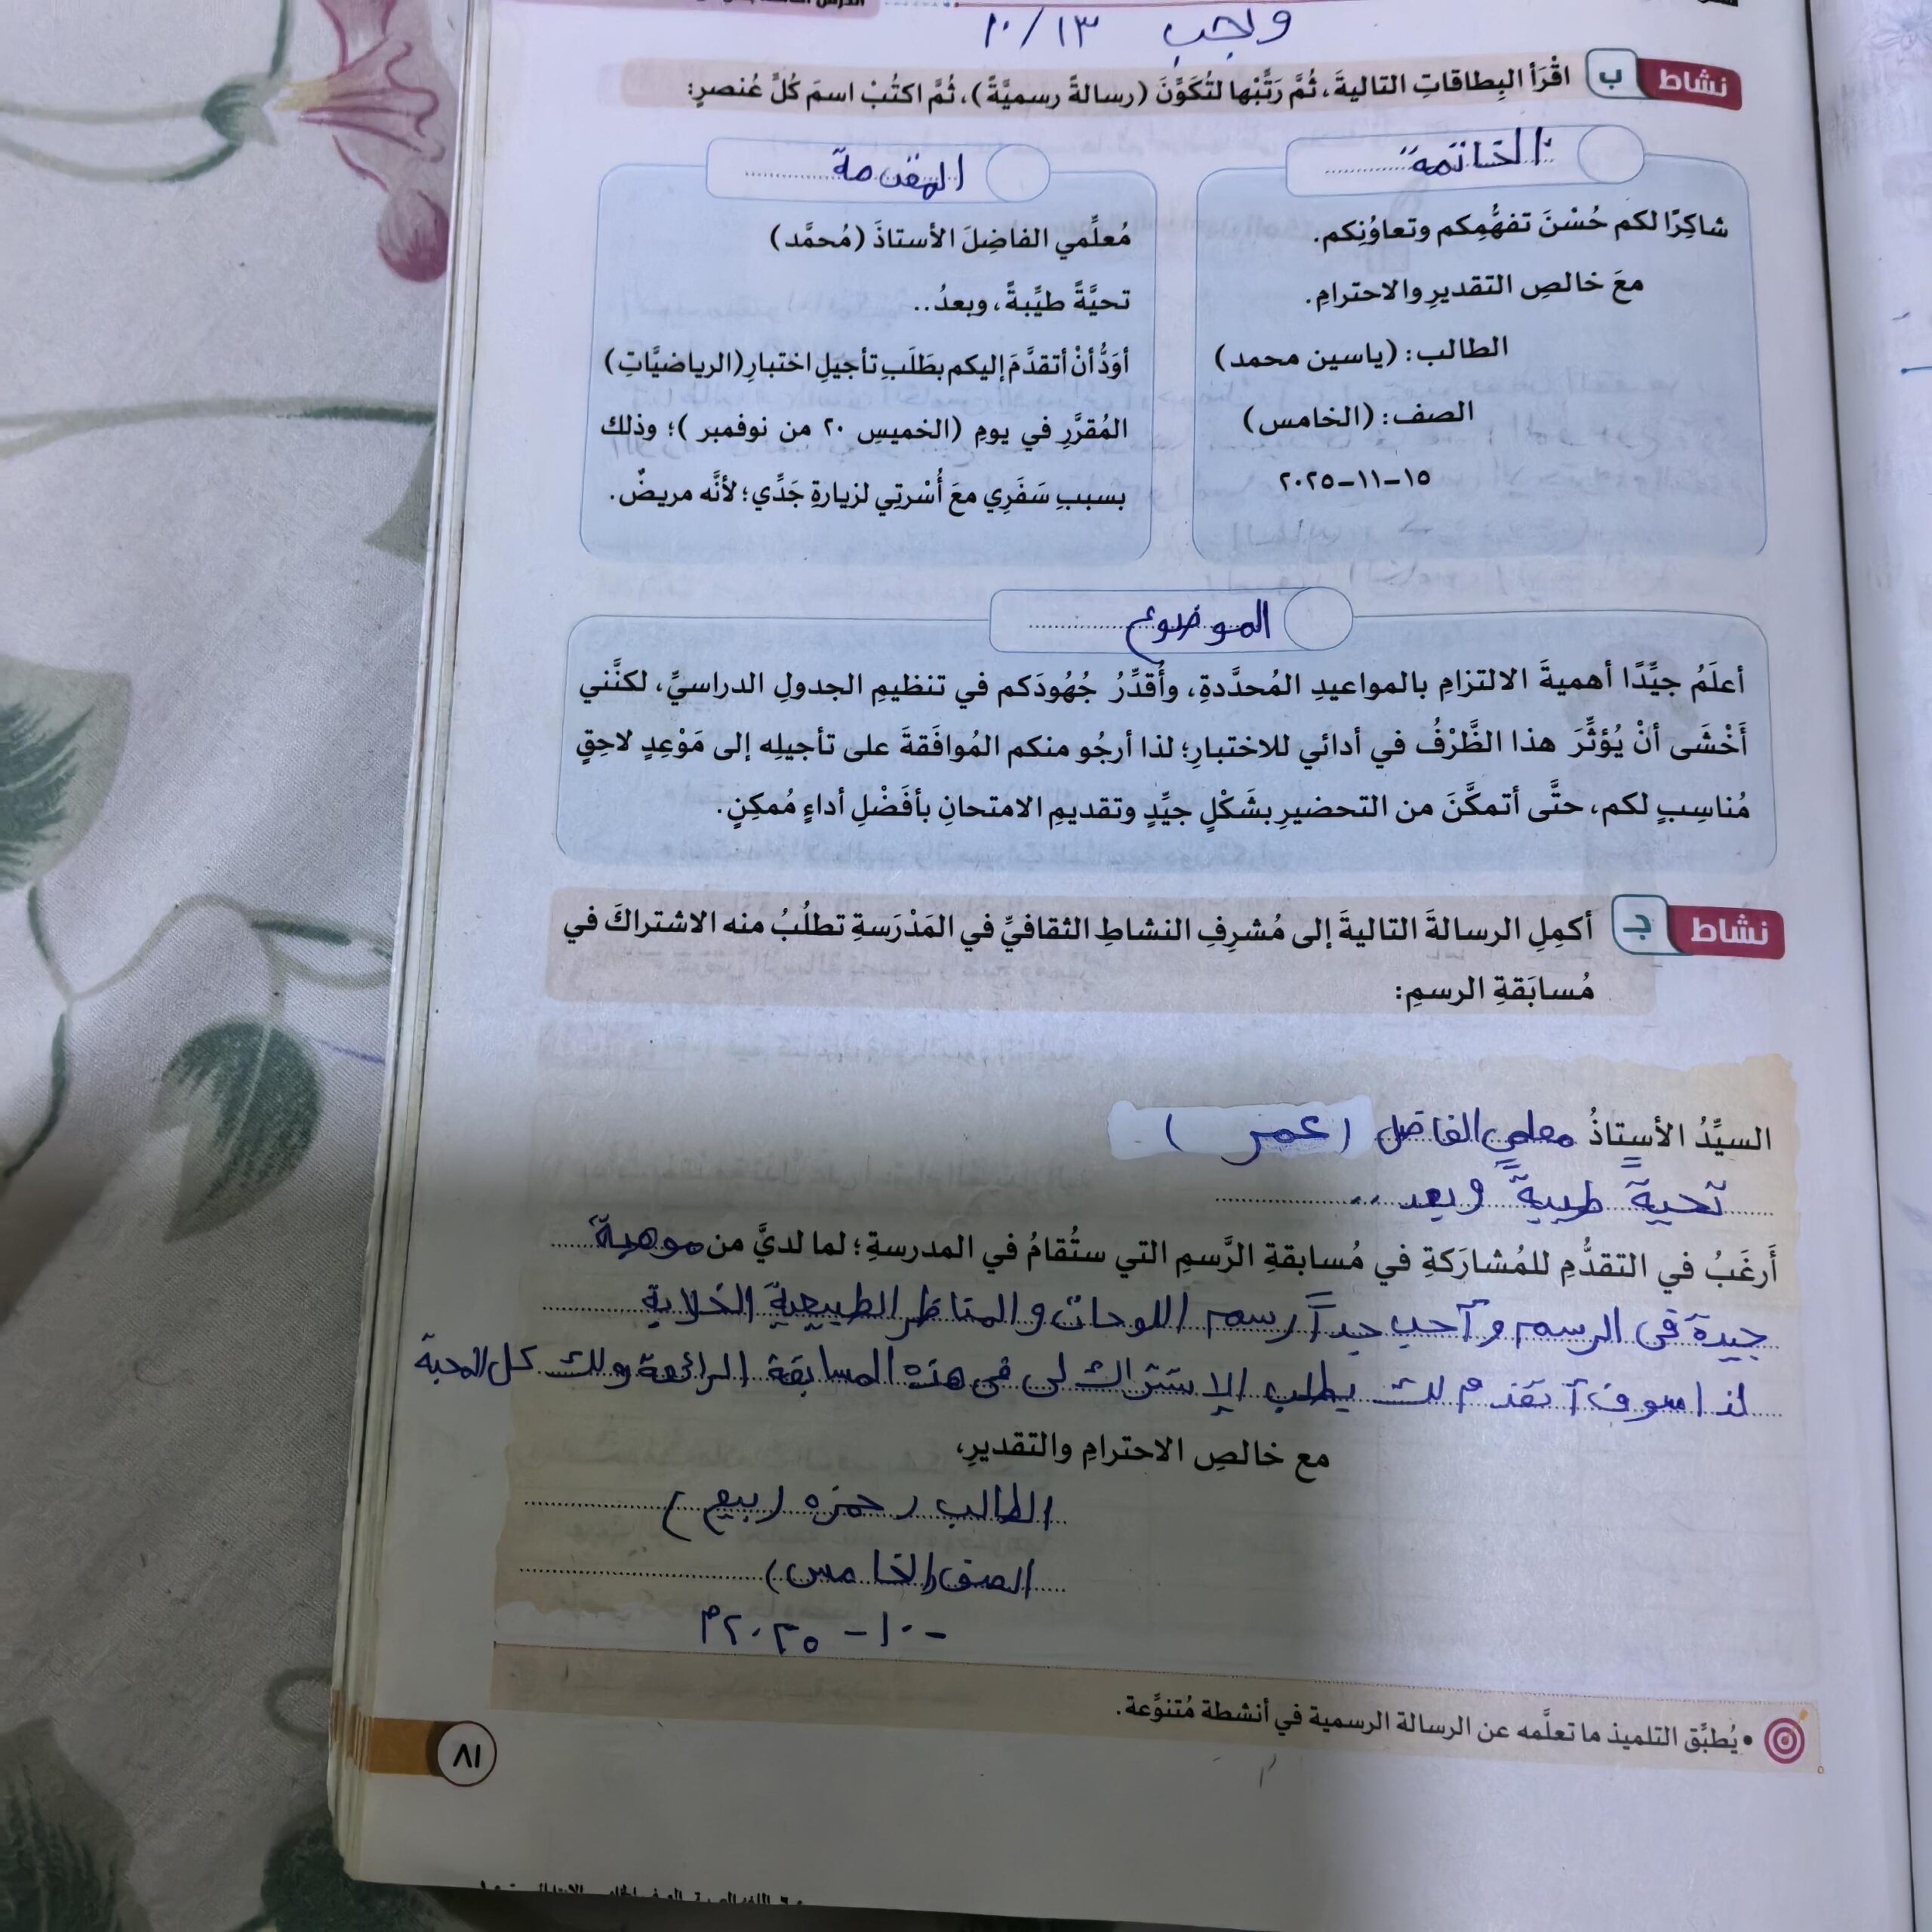 وجب ١٠/١٣
نشاط ب اقْرَأ البِطاقاتِ التاليةَ، ثُمَّ رَتِّبْها لتُكَوِّنَ (رسالةً رسميَّةً)، ثُمَّ اكتُبْ اسمَ كُلِّ عُنصرٍ:
الخاتمة
شاكِرًا لكم حُسْنَ تفهُّمِكم وتعاوُنِكم.
معَ خالصِ التقديرِ والاحترامِ.
الطالب: (ياسين محمد)
الصف: (الخامس)
١٥-١١-٢٠٢٥
المقدمة
مُعلِّمي الفاضِلَ الأستاذَ (مُحمَّد)
تحيَّةً طيِّبةً، وبعدُ..
أوَدُّ أنْ أتقدَّمَ إليكم بطَلَبِ تأجيلِ اختبارِ (الرياضيَّاتِ)
المُقرَّرِ في يومِ (الخميسِ ٢٠ من نوفمبر )؛ وذلك
بسببِ سَفَرِي معَ أُسْرتِي لزيارةِ جَدِّي؛ لأنَّه مريضٌ.
الموضوع
أعلَمُ جيِّدًا أهميةَ الالتزامِ بالمواعيدِ المُحدَّدةِ، وأُقدِّرُ جُهُودَكم في تنظيمِ الجدولِ الدراسيِّ، لكنَّني
أَخْشَى أنْ يُؤثِّرَ هذا الظَّرْفُ في أدائي للاختبارِ؛ لذا أرجُو منكم المُوافَقةَ على تأجيلِه إلى مَوْعِدٍ لاحِقٍ
مُناسِبٍ لكم، حتَّى أتمكَّنَ من التحضيرِ بشَكْلٍ جيِّدٍ وتقديمِ الامتحانِ بأفَضْلِ أداءٍ مُمكِنٍ.
نشاط جـ أكمِلِ الرسالةَ التاليةَ إلى مُشرِفِ النشاطِ الثقافيِّ في المَدْرَسةِ تطلُبُ منه الاشتراكَ في
مُسابَقةِ الرسمِ:
السيِّدُ الأستاذُ معلمي الفاضل (عمر )
تحيةً طيبةً وبعد ..
أَرغَبُ في التقدُّمِ للمُشارَكةِ في مُسابقةِ الرَّسمِ التي ستُقامُ في المدرسةِ؛ لما لديَّ من موهبة
جيدة فى الرسم وأحب جيداً رسم اللوحات والمناظر الطبيعية الخلابة
لذا سوف أتقدم لك بطلب الإشتراك لى فى هذه المسابقة الرائعة ولك كل المحبة
مع خالصِ الاحترامِ والتقديرِ،
الطالب (حمزه ربيع)
الصف (الخامس)
- ١٠ - ٢٠٢٥م
• يُطبِّق التلميذ ما تعلَّمه عن الرسالة الرسمية في أنشطة مُتنوِّعة.
٨١